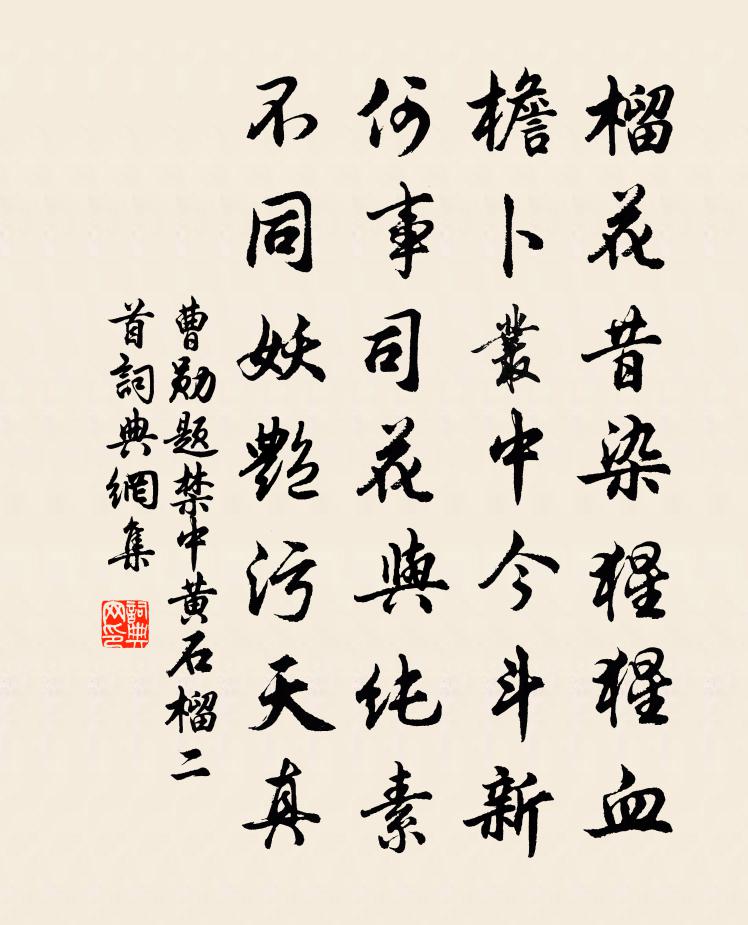 榴花昔染猩猩血
檐卜叢中今斗新
何事司花與纯素
不同妖艷污天真
曹勛题禁中黄石榴二
首詞典網集
詞典
网印